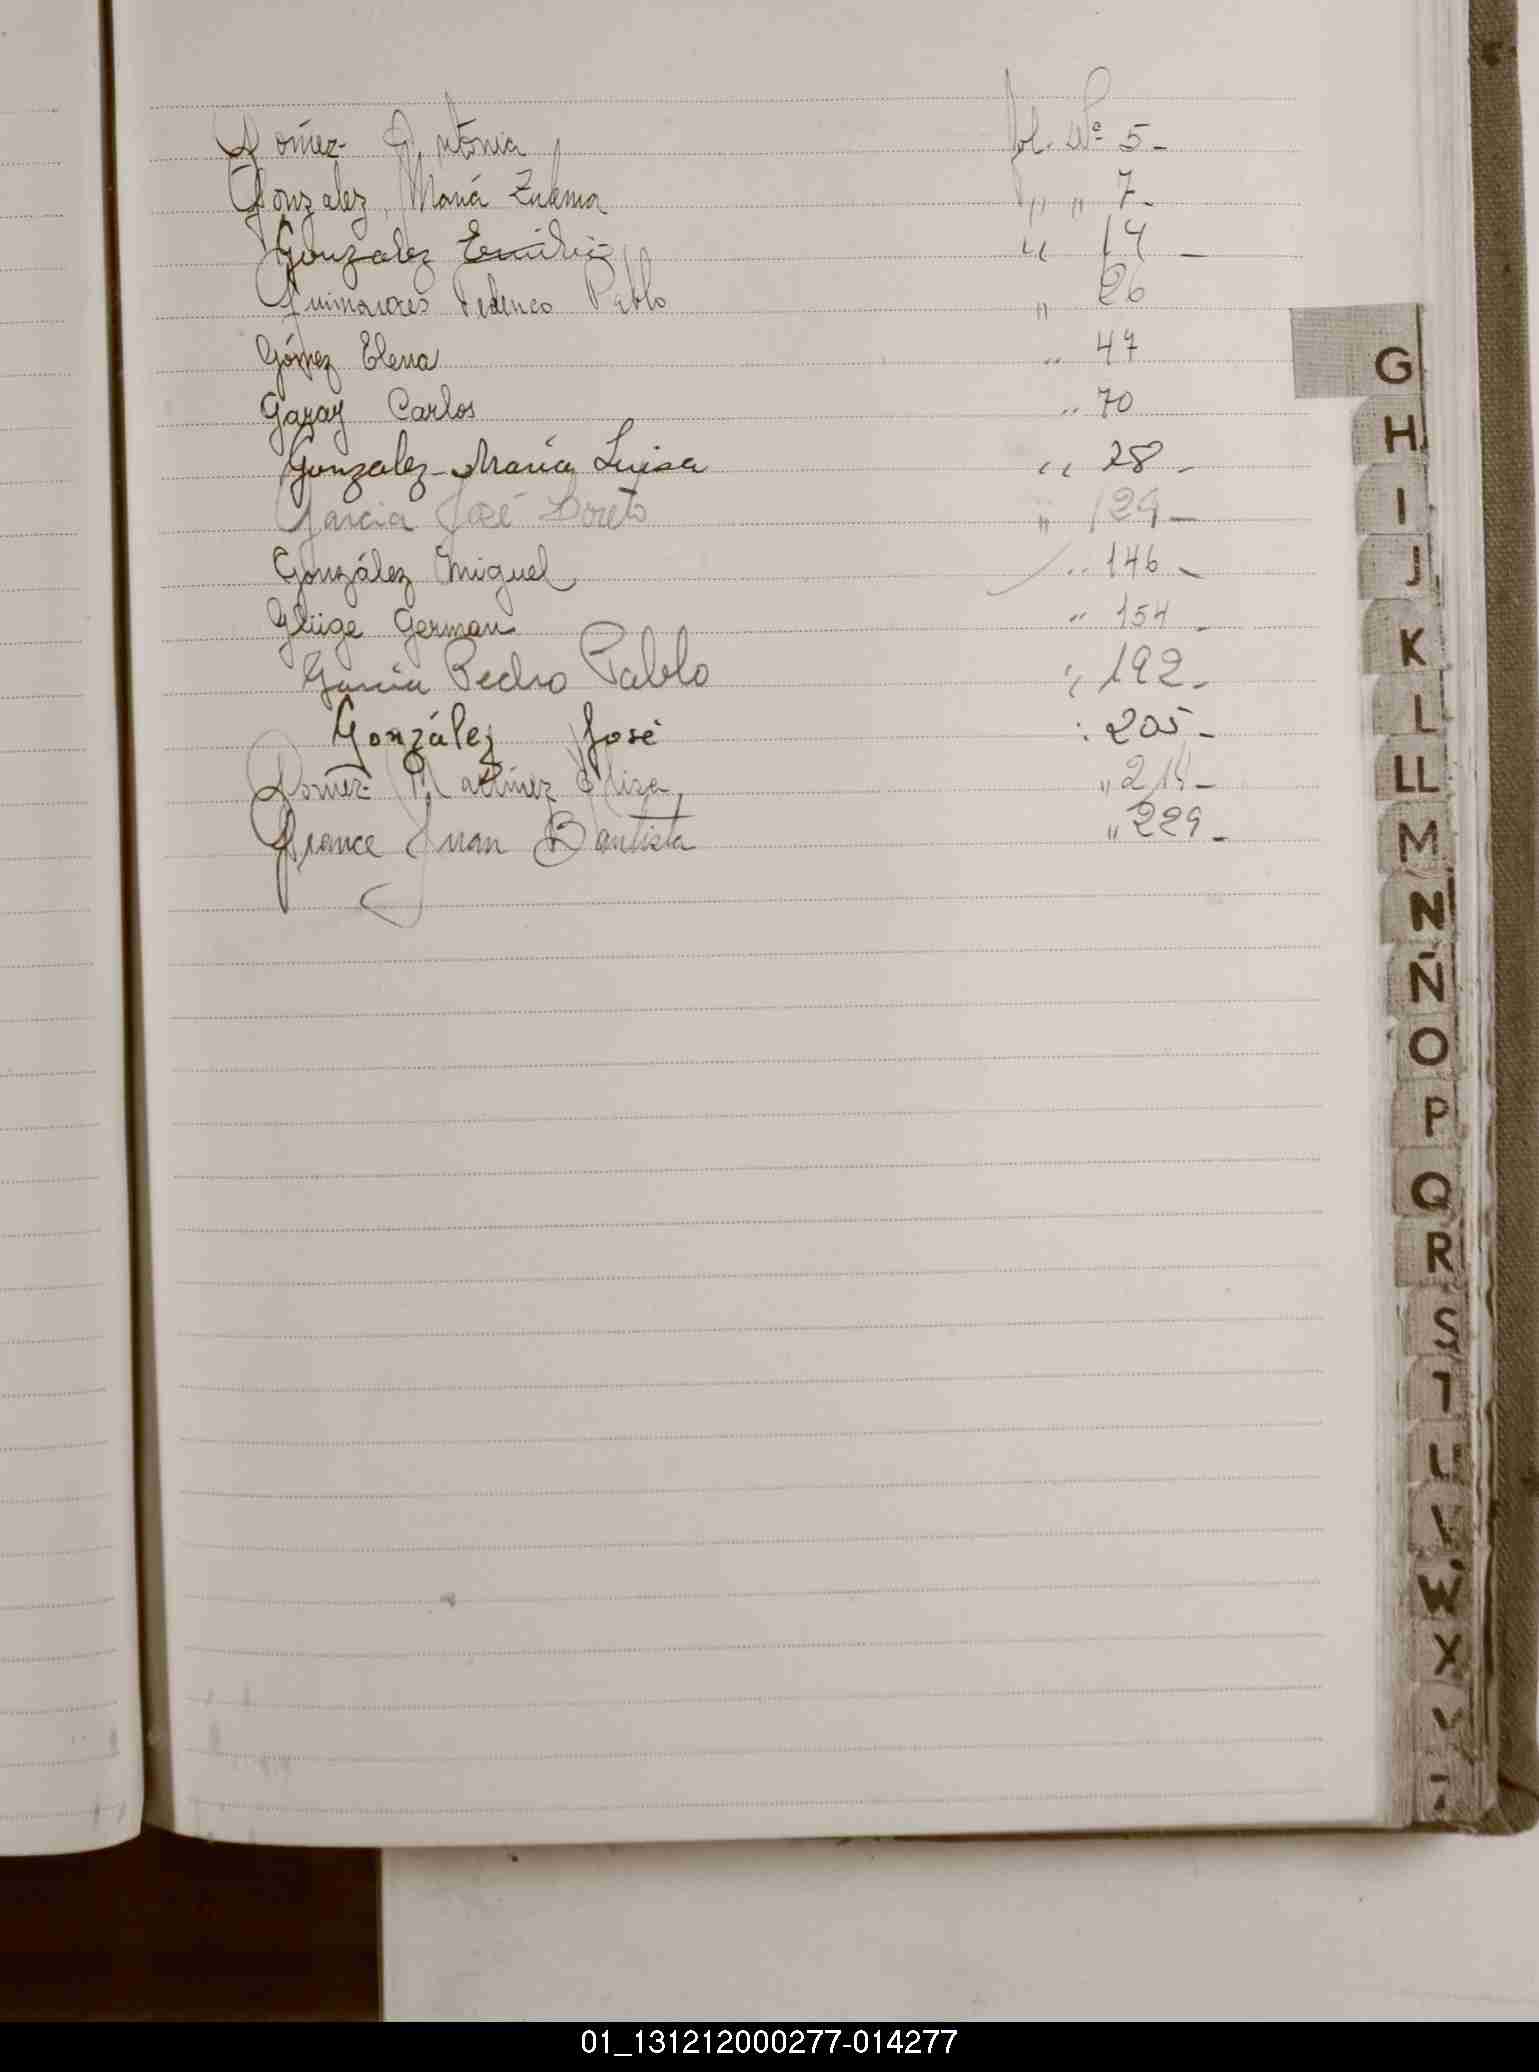 Gómez Antonia fol. Nº 5-
Gonzalez, María Zulema " " 7-
Gonzalez Emilio " 14 -
Guimaraes Federico Pablo " 26
Gómez Elena " 47
Garay Carlos " 70
Gonzalez María Luisa " 28 -
García José Loreto " 129 -
González Miguel " 146 -
Glüge German " 154 -
García Pedro Pablo " 192 -
González José : 205 -
Gómez Martínez Elisa "
Grance Juan Bautista " 229 -
G
H
I
J
K
L
LL
M
N
Ñ
O
P
Q
R
S
T
U
V
W
X
Y
01_131212000277-014277